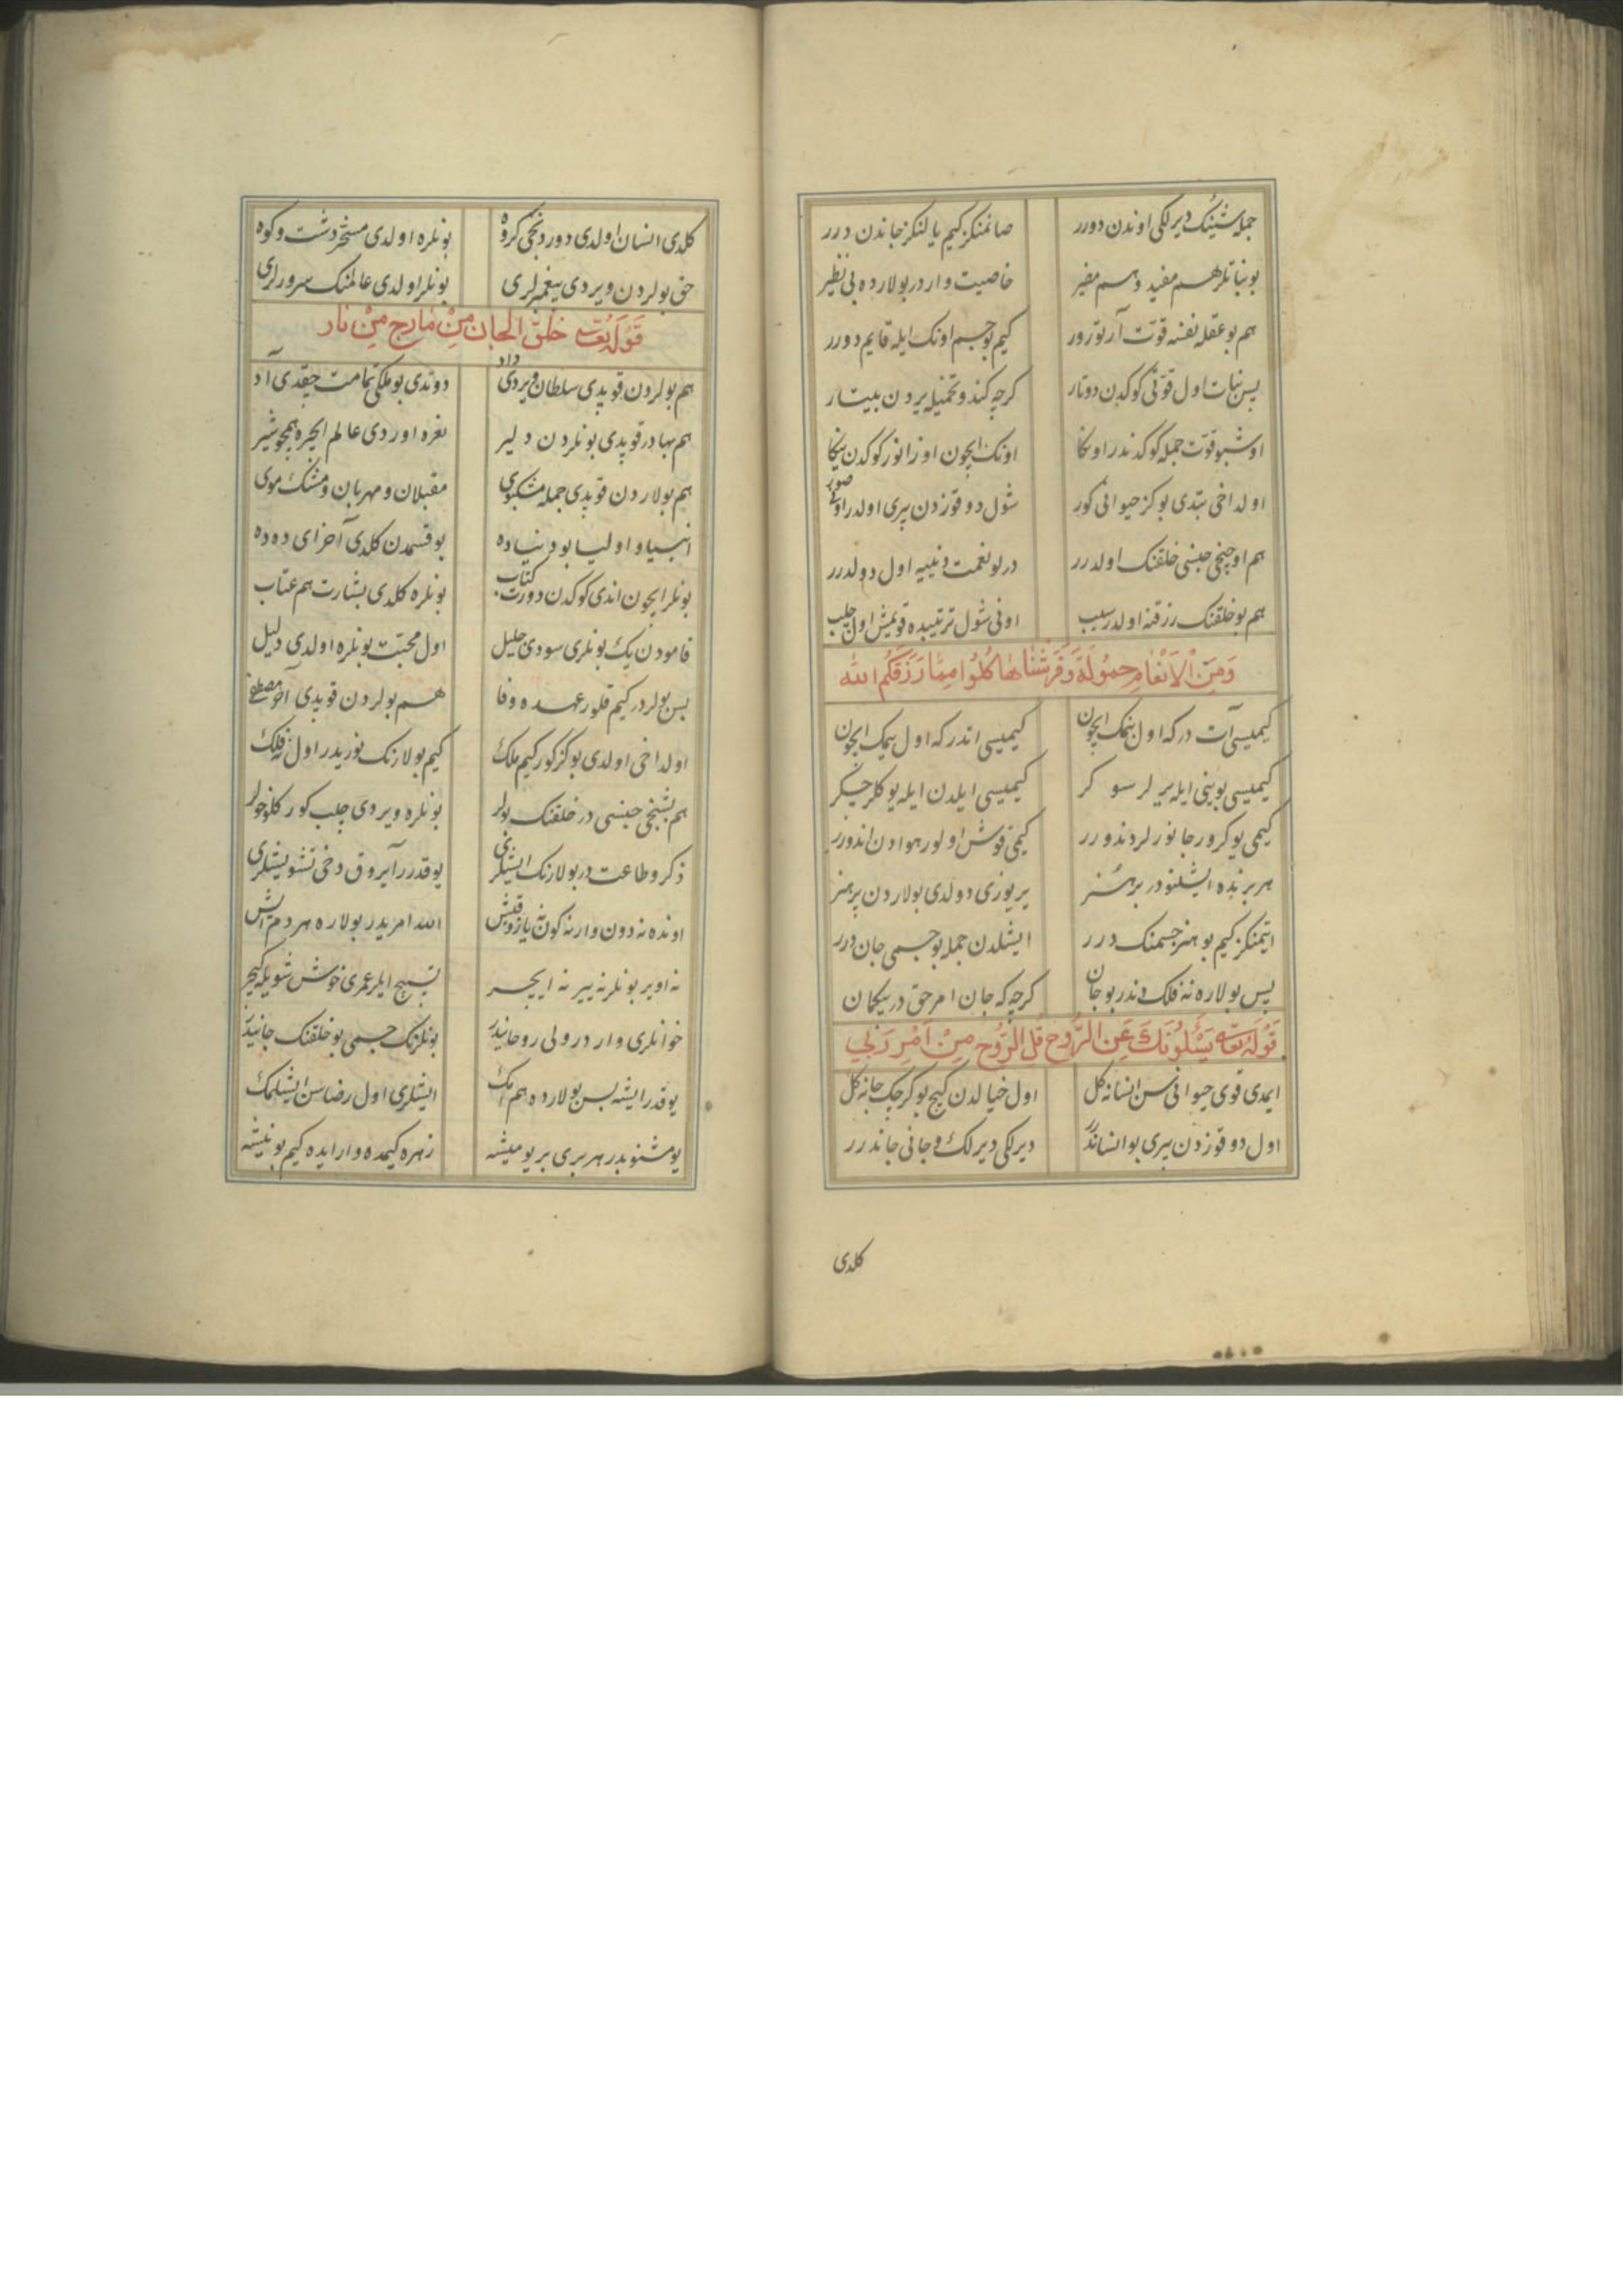 جمله شینک دیرلکی اوندن دورر صانمنکز کیم یالنکز جاندن درر
بو نباتلر هم مفید و هم مضر خاصیت وار در بولارده بی نظیر
هم بو عقله نفسه قوّت آرتورور کیم بو جسم اونک ایله قایم دورر
پس نبات اول قوّتی کوکدن دوتار کرچه کندو تخمیله یردن بیتار
اوشبو قوّت جمله کوکدندر اوکا اونک ایچون اوزانور کوکدن یکا
اولداخی بتدی بو کز حیوانی کور شول دوقوزدن بیری اولدر اول صور
هم اوچنجی جنسی خلقنک اولدرر درلو نعمت دنییه اول دولدرر
هم بو خلقنک رزقنه اولدر سبب اونی شول ترتیبده قومش اول چلب
وَمِنَ الْاَنْعَامِ حَمُولَةً وَفَرْشًا كُلُوا مِمَّا رَزَقَكُمُ الله
کیمیسی آت در که اول بنمک ایچون کیمیسی اتدر که اول ییمک ایچون
کیمیسی بوینی ایله یر لر سو کر کیمیسی ایلدن ایله یوکلر چکر
کیمی یوکرور جانورلر دندورر کیمی قوش اولور هوادن اندورر
هر برنده ایشلنور بر هنر یر یوزی دولدی بولاردن پر هنر
ایتمنکز کیم بو هنر جسمنک درر ایشلدن جمله بو جسمی جان درر
پس بولاره نه فلک دندر بو جان کرچه که جان امر حق در بیکمان
قَوْلُهُ تَعَالَى يَسْئَلُونَكَ عَنِ الرُّوحِ قُلِ الرُّوحُ مِنْ اَمْرِ رَبِّي
ایمدی قوی حیوانی سن انسانه کل اول خیالدن کیچ بو کرچک جانه کل
اول دوقوزدن بیری بو انساندرر دیرلکی دیرلک و جانی جاندرر
کلدی
کلدی انسان اولدی دوردنجی کروه بونلره اولدی مسخر دشت و کوه
حق بولردن ویردی پیغمبرلری بونلر اولدی عالمنک سرورلری
قَوْلُهُ تَعَالَى خَلَقَ الْجَانَّ مِنْ مَارِجٍ مِنْ نَار
هم بولردن قوپدی سلطان ویردی داد دوتدی بو ملکی تمامت چیقدی آد
هم بهادر قوپدی بونلردن دلیر نعره اوردی عالم ایچره همچو شیر
هم بولاردن قوپدی جمله مشکبوی مقبلان و مهربان و مشک موی
انبیا و اولیا بو دنیاده بو قسمدن کلدی آخر ای دده
بونلر ایچون اندی کوکدن دورت کتاب بونلره کلدی بشارت هم عتاب
قامودن یک بونلری سودی جلیل اول محبت بونلره اولدی دلیل
پس بولردر کیم قلور عهده وفا هم بولردن قوپدی آخر مصطفی
اولداخی اولدی بو کز کور کیم ملک کیم بولارنک نوریدر اول نه فلک
هم بشنجی جنسی در خلقنک بولر بونلره ویردی چلب کور کلو خولر
ذکر و طاعت در بولارنک ایشلری یوقدرر آیروق دخی تشویشلری
اونده نه دون وار نه کون نه یاز و قیش الله امریدر بولاره هر دم ایش
نه اویر بونلر نه ییر نه ایچر تسبیح ایلر عمری خوش شویله کیچر
خوانلری وار در ولی روحانیدر بونلرنک جسمی بو خلقنک جانیدر
یوقدر ایشه بس بولارده هم امک ایشلری اول رضاسن ایشلمک
یومشنوبدر هر بری بر یومیشه زهره کیمده وار ایده کیم بو نیشه